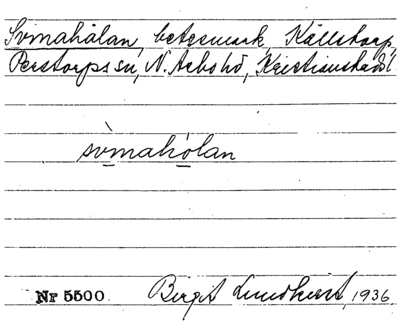 Svinahålan, betesmark, Källstorp,
Perstorps sn, N. Åsbo hd, Kristianstads l
svinahòlan
Nr 5500. Birgit Lundkvist, 1936